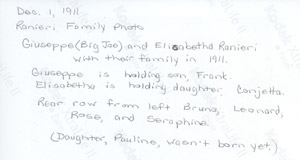 Dec. 1, 1911
Ranieri Family Photo
Giuseppe (Big Joe) and Elisabetha Ranieri
with their family in 1911.
Giuseppe is holding son, Frank.
Elisabetha is holding daughter Conjetta.
Rear row from left Bruno, Leonard,
Rose, and Seraphine.
(Daughter, Pauline, wasn't born yet.)